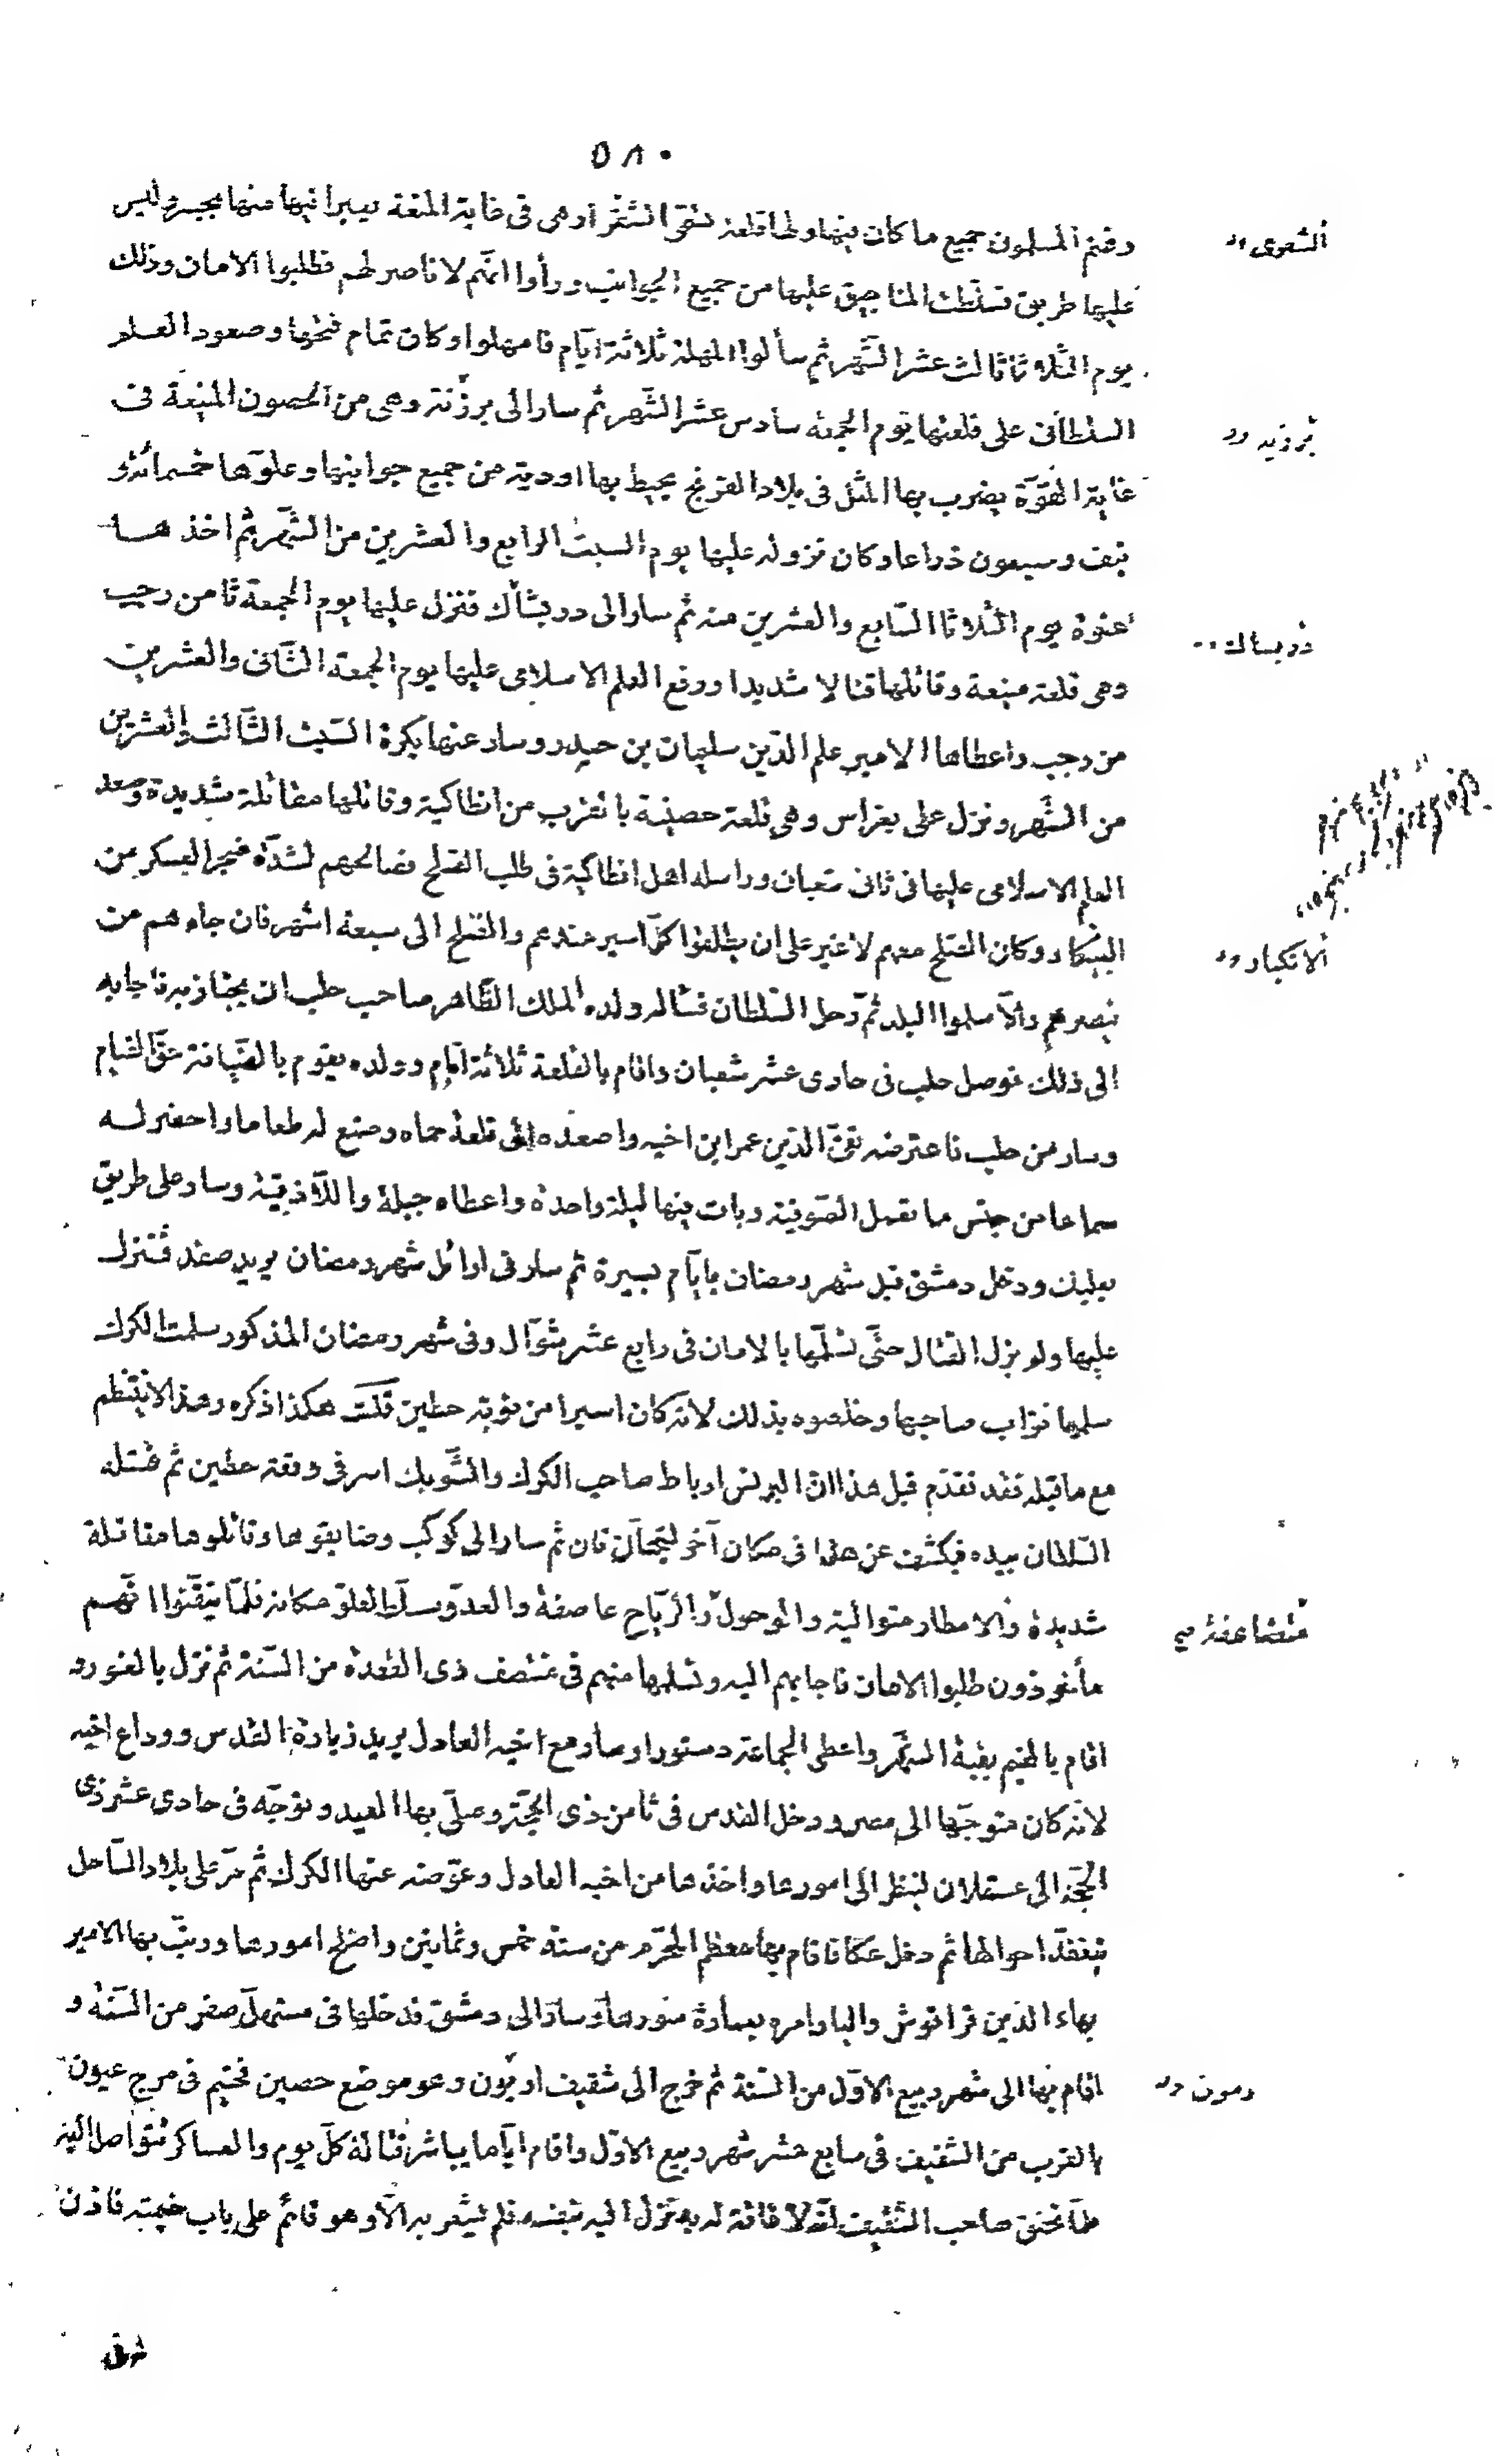 ٥٨٠
وغنم المسلمون جميع ما كان فيها ولها قلعة تسمى الشغر وهي في غاية المنعة يعبر اليها منها بجسر وليس
الشغرى
عليها طريق فسلطت المناجيق عليها من جميع الجوانب ورأوا انهم لا ناصر لهم فطلبوا الامان وذلك
يوم الثلاثا ثالث عشر الشهر ثم سألوا المهلة ثلاثة ايام فامهلوا وكان تمام فتحها وصعود العلم
السلطاني على قلعتها يوم الجمعة سادس عشر الشهر ثم سار الى برزنة وهي من الحصون المنيعة في
برزيه
غاية القوة يضرب بها المثل في بلاد الفرنج يحيط بها اودية من جميع جوانبها وعلوها خمسمائة و
نيف وسبعون ذراعا وكان نزوله عليها يوم السبت الرابع والعشرين من الشهر ثم اخذها
عنوة يوم الثلاثا السابع والعشرين منه ثم سار الى دربساك فنزل عليها يوم الجمعة ثامن رجب
دربساك
وهي قلعة منيعة وقاتلها قتالا شديدا ورفع العلم الاسلامي عليها يوم الجمعة الثاني والعشرين
من رجب واعطاها الامير علم الدين سليمان بن حيدر وسار عنها بكرة السبت الثالث والعشرين
من الشهر ونزل على بغراس وهي قلعة حصينة بالقرب من انطاكية وقاتلها مقاتلة شديدة وصعد
العلم الاسلامي عليها في ثاني شعبان وراسله اهل انطاكية في طلب الصلح فصالحهم لشدة ضجر العسكر من
البيكار وكان الصلح معهم لا غير على ان يطلقوا كل اسير عندهم والصلح الى سبعة اشهر فان جاءهم من
الانكباد
ينصرهم والا سلموا البلد ثم رحل السلطان فسأله ولده الملك الظاهر صاحب حلب ان يجتاز به فاجابه
الى ذلك فوصل حلب في حادي عشر شعبان واقام بالقلعة ثلاثة ايام وولده يقوم بالضيافة حق القيام
وسار من حلب فاعترضه تقي الدين عمر ابن اخيه واصعده الى قلعة حماه وصنع له طعاما واحضر له
سماعا من جنس ما تعمل الصوفية وبات فيها ليلة واحدة واعطاه جبلة واللاذقية وسار على طريق
بعلبك ودخل دمشق قبل شهر رمضان بايام يسيرة ثم سار في اوائل شهر رمضان يريد صفد فنزل
عليها ولم يزل القتال حتى تسلمها بالامان في رابع عشر شوال وفي شهر رمضان المذكور سلمت الكرك
سلمها نواب صاحبها وخلصوه بذلك لانه كان اسيرا من نوبة حطين قلت هكذا ذكره وهذا لا ينتظم
مع ما قبله فقد تقدم قبل هذا ان البرنس ارباط صاحب الكرك والشوبك اسر في وقعة حطين ثم قتله
السلطان بيده فيكشف عن هذا في مكان آخر ليتحقق قال ثم سار الى كوكب وضايقوها وقاتلوها مقاتلة
شديدة والامطار متوالية والوحول والرياح عاصفة والعدو متسلط لعلو مكانه فلما تيقنوا انهم
متضاعفة صح
مأخوذون طلبوا الامان فاجابهم اليه وتسلمها منهم في منتصف ذي القعدة من السنة ثم نزل بالغور و
اقام بالمخيم بقية الشهر واعطى الجماعة دستورا وسار مع اخيه العادل يريد زيارة القدس ووداع اخيه
لانه كان متوجها الى مصر ودخل القدس في ثامن ذي الحجة وصلى بها العيد وتوجه في حادي عشر ذي
الحجة الى عسقلان لينظر الى امورها واخذها من اخيه العادل وعوضه عنها الكرك ثم مر على بلاد الساحل
يتفقد احوالها ثم دخل عكا فاقام بها معظم المحرم من سنة خمس وثمانين واصلح امورها ورتب بها الامير
بهاء الدين قراقوش واليا وامره بعمارة سورها وسار الى دمشق فدخلها في مستهل صفر من السنة و
اقام بها الى شهر ربيع الاول من السنة ثم خرج الى شقيف ارنون وهو موضع حصين فخيم في مرج عيون
بالقرب من الشقيف في سابع عشر شهر ربيع الاول واقام اياما يباشر قتاله كل يوم والعساكر تتواصل اليه
فلما تحقق صاحب الشقيف انه لا طاقة له به نزل اليه بنفسه فلم يشعر به الا وهو قائم على باب خيمته فاذن